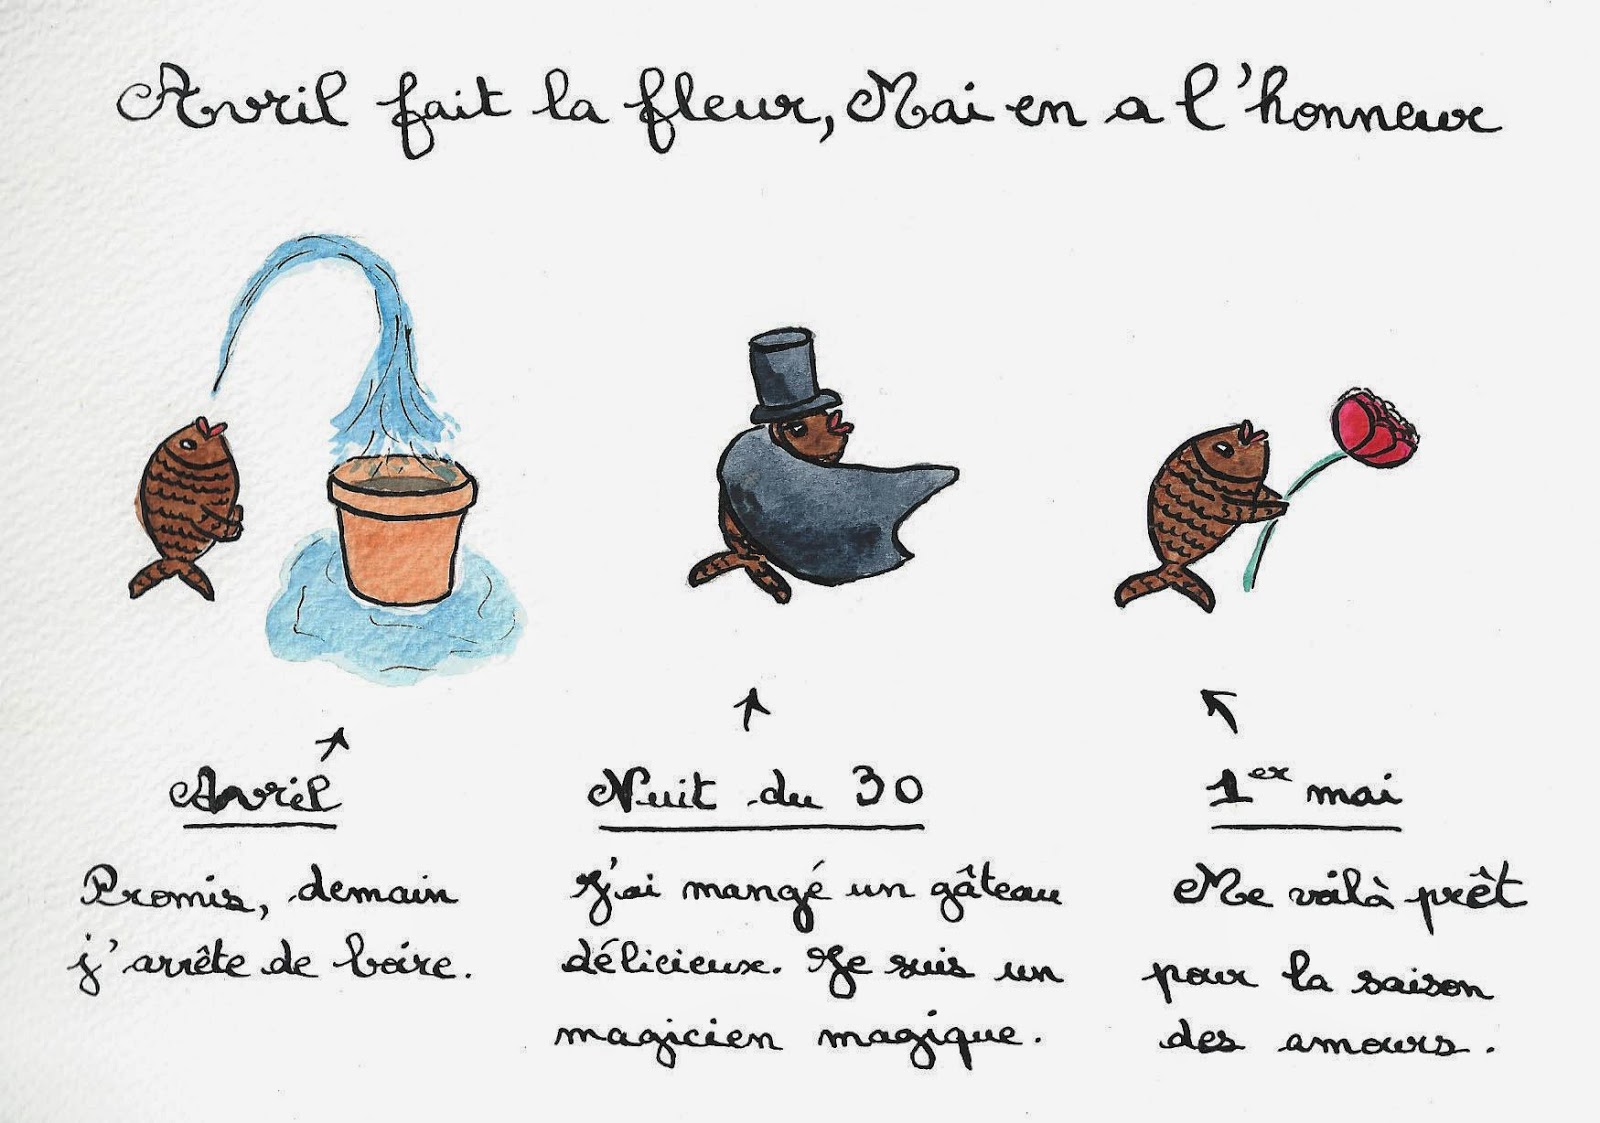 Avril fait la fleur, Mai en a l'honneur
Avril
Promis, demain
j'arrête de boire.
Nuit du 30
J'ai mangé un gâteau
délicieux. Je suis un
magicien magique.
1er mai
Me voilà prêt
pour la saison
des amours.